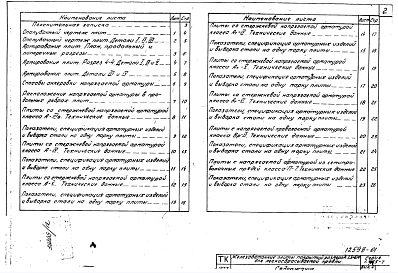 Наименование листа Лист Стр
Пояснительная записка 3
Опалубочный чертеж плит 1 4
Опалубочный чертеж плит. Детали I, II, III 2 5
Армирование плит. План, продольный и
поперечный разрезы 3 6
Армирование плит. Разрез 4-4 Детали I, II и 4 7
Армирование плит. Детали и 5 8
Способы анкеровки напрягаемой арматуры 6 9
Расположение напрягаемой арматуры в про-
дольных ребрах плит 7 10
Плиты со стержневой напрягаемой арматурой
класса Технические данные 8 11
Показатели, спецификация арматурных изделий
и выборка стали на одну марку плиты 9 12
Плиты со стержневой напрягаемой арматурой
класса Технические данные 10 13
Показатели, спецификация арматурных изделий
и выборка стали на одну марку плиты 11 14
Плиты со стержневой напрягаемой арматурой
класса Технические данные 12 15
Показатели, спецификация арматурных изделий
и выборка стали на одну марку плиты 13 16
Наименование листа Лист Стр
Плиты со стержневой напрягаемой арматурой
класса Технические данные 14 17
Показатели, спецификация арматурных изделий
и выборка стали на одну марку плиты 15 18
Плиты со стержневой напрягаемой арматурой
класса Технические данные 16 19
Показатели, спецификация арматурных изделий
и выборка стали на одну марку плиты 17 20
Плиты со стержневой напрягаемой арматурой
класса Технические данные 18 21
Показатели, спецификация арматурных изделий
и выборка стали на одну марку плиты 19 22
Плиты с напрягаемой арматурой
класса Технические данные 20 23
Показатели, спецификация арматурных изделий
и выборка стали на одну марку плиты 21 24
Плиты с напрягаемой арматурой из семипро-
волочных прядей класса П-7. Технические данные 22 25
Показатели, спецификация арматурных изделий
и выборка стали на одну марку плиты 23 26
2
12598-01
ТК
Железобетонные плиты покрытий размером
для
Содержание